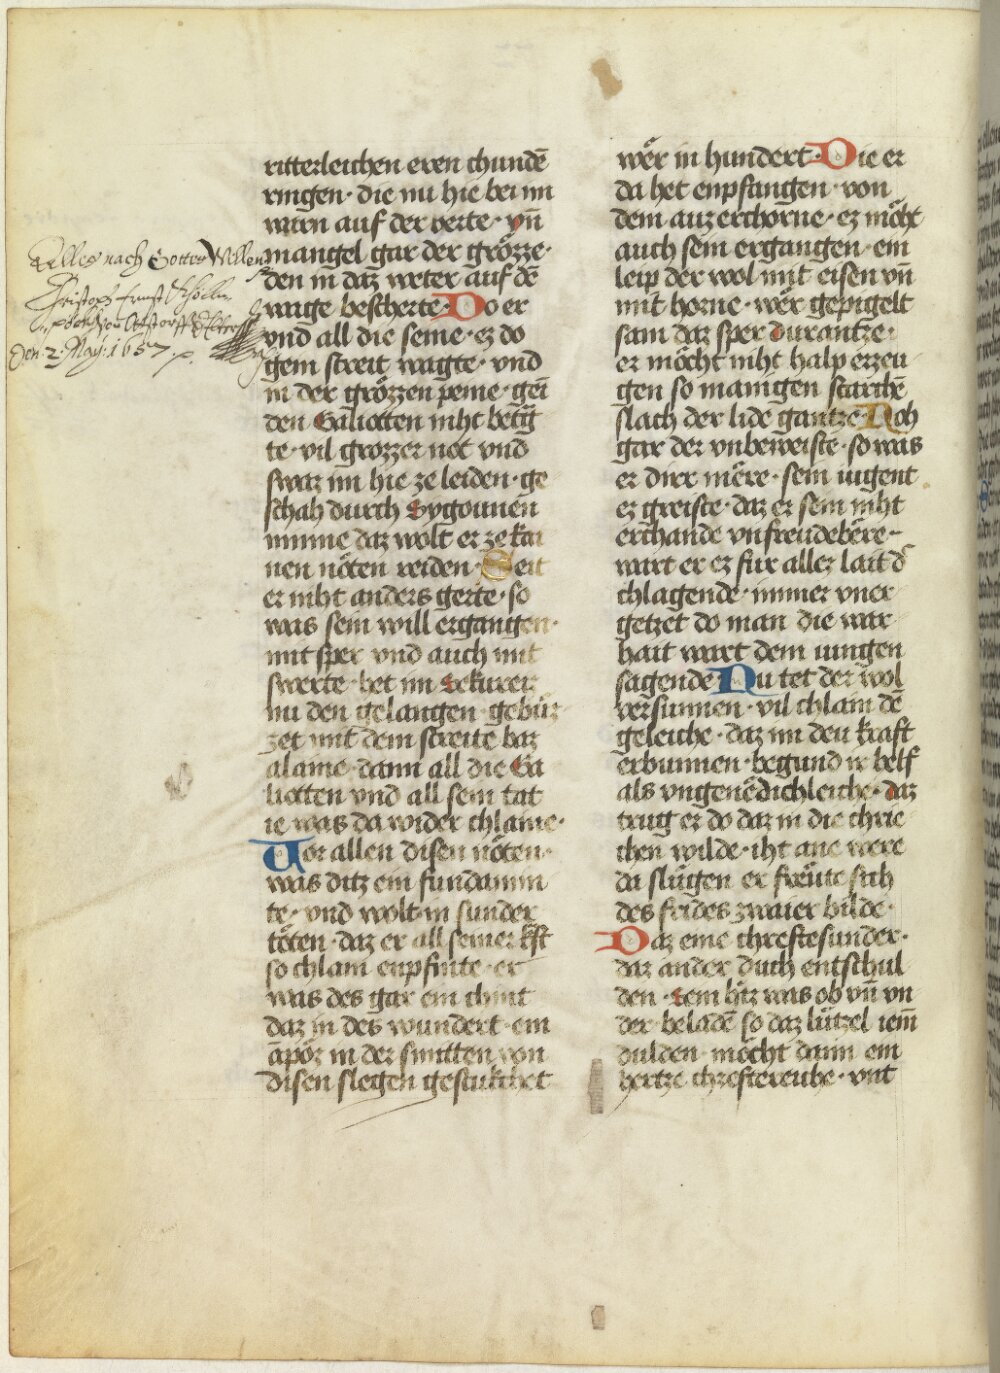 ritterleichen eren chundē
ringen · die nu hie bei im
warn auf der verte · vn̄
mangel gar der grözze ·
den in daz weter auf dē
wage bescherte · Do er
vnd all die seine · ez do
gem streit wagte · vnd
in der grözzen peine · gen
den Galiotten niht betg̈
te · vil grozzer not vnd
swaz im hie ze leiden · ge
schah durch Sygounen
minne daz wolt er ze kai
nen nöten reiden · Seit
er niht anders gerte · so
was sein will ergangen ·
mit sper vnd auch mit
swerte · het im Sekureiz
nu den gelangen gebüz
zet mit dem streite baz
alaine · dann all die Ga
liotten vnd all sein tat
ie was da wider chlaine ·
Vor allen disen nöten ·
was ditz ein fundamin
te · vnd wolt in sunder
töten · daz er all seiner kft
so chlain enpfinte · er
was des gar ein chint
daz in des wundert · ein
apöz in der smitten von
disen slegen gestukchet
wër in hundert · Die er
da het enpfangen · von
dem auz erchorne · ez möht
auch sein ergangen · ein
leip der wol mit eisen vn̄
mit horne · wër gepigelt
sam daz sper durantze ·
er möcht niht halp erzeu
gen so manigen starchē
slach der lide gantze · Noh
gar der vnbeweiste · so was
er dirr mëre · sein iugent
ez greiste · daz er sein niht
erchande vnfreudebëre ·
wart er ez fur allez lait d͛
chlagende · immer vner
getzet do man die war
hait wart dem iungen
sagende Nu tet der wol
versunnen · vil chlain dē
geleiche · daz im deu kraft
erbunnen · begund ir helf
als vngenëdichleiche · daz
trug er do daz in die chrie
chen wilde · iht ane were
da slügen er freüte sich
des frides zwaier bilde ·
Daz eine chreftesunder ·
daz ander duch entschul
den · Sein hᵃrz was ob vn̄ vn
der beladē so daz lützel iem̄
dulden möcht dann ein
hertze chreftereiche · vnt
Alles nach Gottes Willen
Christoph Ernst
Den · 2 · May · 1657 ·